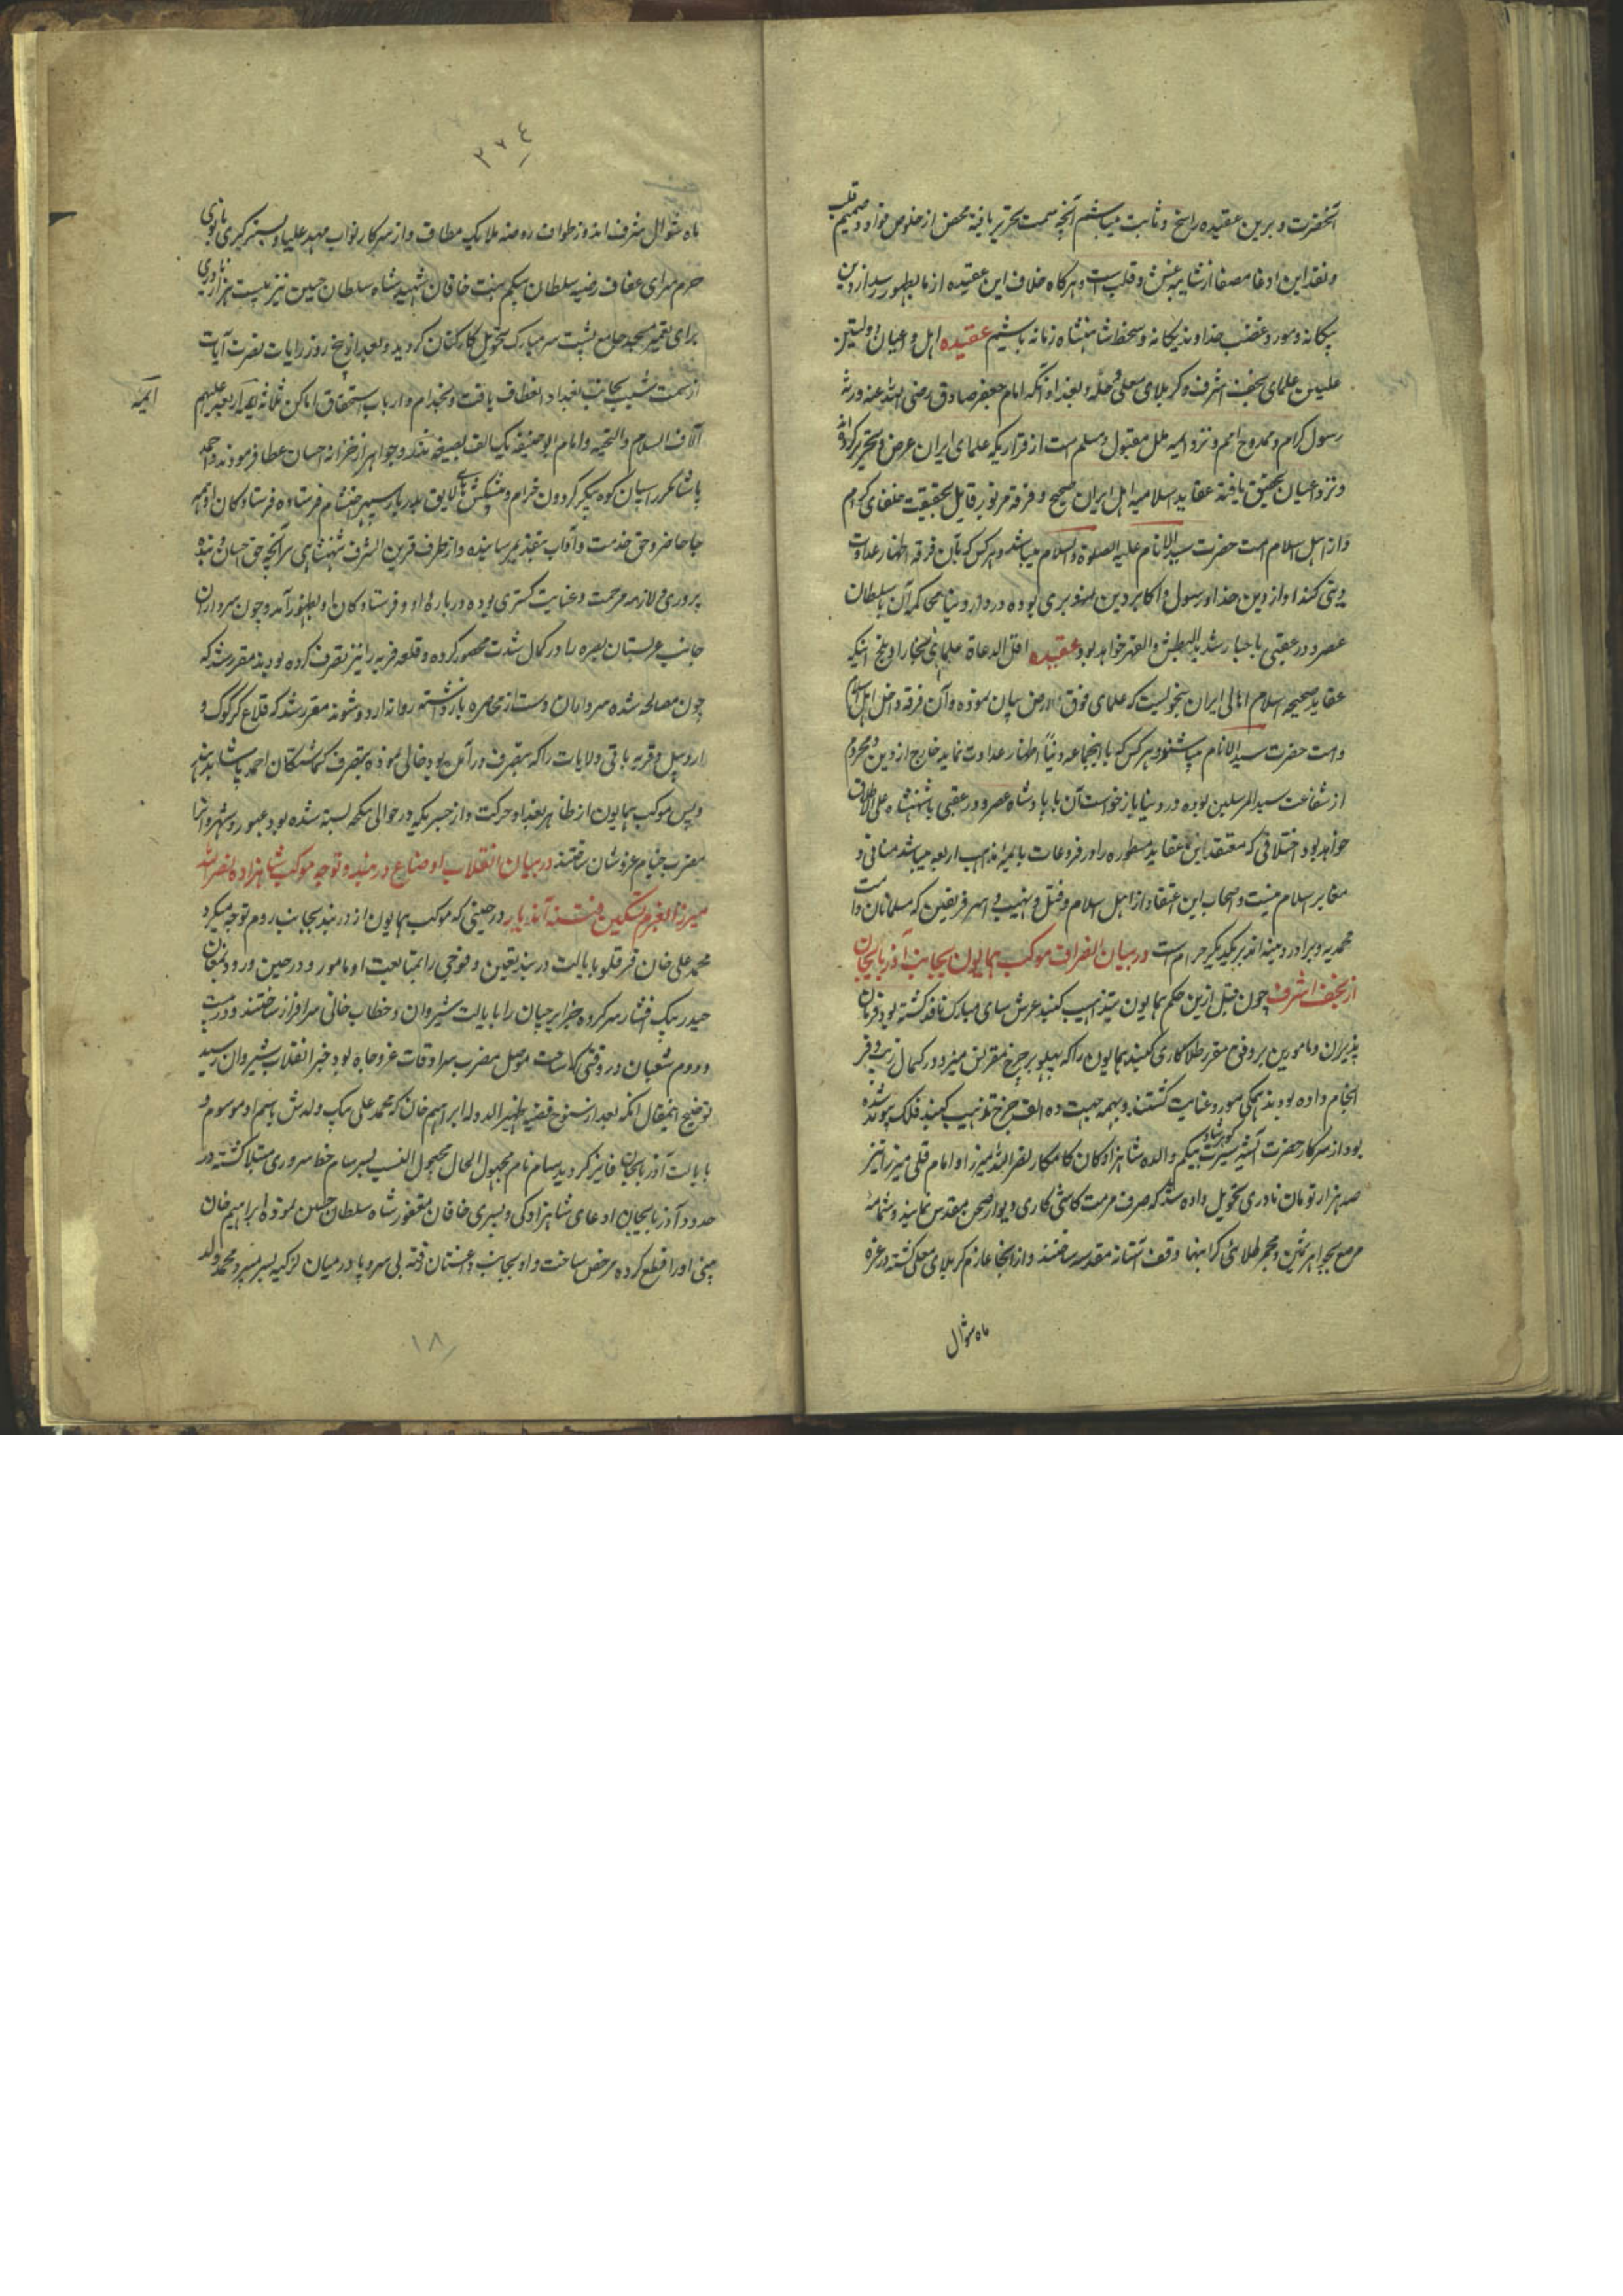 آنحضرت و برین عقیده راسخ و ثابت میباشیم آنچه سمت تحریر یافته محض از خلوص فواد و صمیم قلب
و نقد این ادعا مصفا از شایبه غش و قلب است و هرگاه خلاف این عقیده از ما بظهور رسد از دین
بیگانه و مورد غضب خداوند یگانه و سخط شاهنشاه زمانه باشیم عقیده اهل و اعیان و
علمای نجف اشرف و کربلای معلی و حله و بغداد آنکه امام جعفر صادق رضی الله عنه ذریه
رسول اکرم و ممدوح امم و نزد ائمه ملل مقبول و مسلم است از قراریکه علمای ایران عرض و تحریر کرده‌اند
و نزد اعیان تحقیق یافته عقاید اسلامیه اهل ایران صحیح و فرقه مزبور قایل بحقیقت خلفای کرام
و از اهل اسلام امت حضرت سید الانام علیه الصلوة و السلام میباشند و هر کس که بآن فرقه اظهار عداوت
دینی کند او از دین خدا و رسول و اکابر دین بری بوده در دار دنیا محاکمه آن با سلطان
عصر و در عقبی با جبار شدید البطش و القهر خواهد بود عقیده اقل الدعاة علمای بخارا و بلخ اینکه
عقاید صحیحه اسلام اهالی ایران بنحویست که علمای فوق بیان نموده و آن فرقه داخل اهل اسلام
و امت حضرت سید الانام میباشند و هر کس که با آنجماعه دنیاً اظهار عداوت نماید خارج از دین و محروم
از شفاعت سید المرسلین بوده در دنیا بازخواست آن با پادشاه عصر و در عقبی با شهنشاه علی الاطلاق
خواهد بود اختلافی که معتقد این عقاید مسطوره را در فروعات با ائمه مذاهب اربعه میباشد منافی و
مغایر اسلام نیست و صحاب این اعتقاد از اهل اسلام و قتل و نهب و اسر فریقین که مسلمانان و امت
محمدیه و برادر دینند بر یکدیگر حرام است در بیان انصراف موکب همایون بجانب آذربایجان
از نجف اشرف چون قبل ازین حکم همایون بتذهیب گنبد عرش سای مبارک نافذ گشته بود فرمان
پذیران و مامورین بر وفق مقرر طلاکاری گنبد همایون را که پهلو بر چرخ مقرنس میزد در کمال زیب و فر
انجام داده بودند همگی مورد عنایت گشتند
بود از سرکار حضرت گوهرشاد بیگم والده شاهزادگان کامکار نصرالله میرزا و امام قلی میرزا نیز
صد هزار تومان نادری تحویل داده شد که صرف مرمت کاشی کاری دیوار صحن مقدس نمایند و شمامه
مرصع بجواهر ثمین و مجمر طلای گرانبها وقف آستانه مقدسه ساختند و از آنجا عازم کربلای معلی گشته در غره
ماه شوال
۲۷۴
ماه شوال شرف اندوز طواف روضه ملایک مطاف و از سرکار نواب مهد علیا و ستر کبری بانوی
حرم سرای عفاف رضیه سلطان بیگم بنت خاقان شهید شاه سلطان حسین نیز بیست هزار نادری
برای تعمیر مسجد جامع پشت سر مبارک تحویل کارکنان گردید و بعد از پنج روز رایات نصرت آیات
از سمت بجانب بغداد انعطاف یافت و بخدام و ارباب استحقاق اماکن ثلثه علیهم
ائمه
آلاف السلام و التحیه و امام ابو حنیفه جواهر از خزانه احسان عطا فرمودند و احمد
پاشا مکرر اسبان کوه پیکر گردون خرام و پیشکش‌های لایق بدربار سپهر احتشام فرستاده فرستادگان او همه
جا حاضر و حق خدمت و آداب بتقدیم رسانیده و از طرف قرین الشرف شهنشاهی نیز آنچه حق احسان و بنده
پروری و لازمه مرحمت و عنایت گستری بوده درباره او و فرستادگان او بظهور آمد و چون سرداران
جانب عربستان بصره را در کمال شدت محصور کرده و قلعه قرنه را نیز تصرف کرده بودند مقرر شد که
چون مصالحه شده سرداران دست از محاصره بازداشته روانه اردو شوند مقرر شد که قلاع کرکوک و
اردبیل و قرنه باقی ولایات را که بتصرف درآمده بود خالی نموده بتصرف گماشتگان احمد پاشا بدهند
و پس موکب همایون از ظاهر بغداد حرکت و از جسریکه در حوالی بسته شده بود عبور و شهروانرا
مضرب خیام عز و شان ساختند در بیان انقلاب اوضاع دربند و توجه موکب شاهزاده نصرالله
میرزا بعزم تسکین فتنه آندیار در حینی که موکب همایون از دربند بجانب روم توجه میکرد
محمد علی خان قرقلو بایالت دربند تعیین و فوجی را بمتابعت او مامور و در حین ورود بمغان
حیدر بیک افشار سرکرده جزایرچیان را بایالت شیروان و خطاب خانی سرافراز ساختند و در بیست
و دوم شعبان در وقتی که ساحت موصل مضرب سرادقات عز و جاه بود خبر انقلاب شیروان رسید
توضیح اینمقال آنکه بعد از سنوح قضیه ظهیر الدوله ابراهیم خان که محمد علی بیک ولدش باسم او موسوم و
بایالت آذربایجان فایز گردید سام نام مجهول الحال مجهول النسب بسرسام خبط سروری مبتلا گشته در
حدود آذربایجان ادعای شاهزادگی و پسری خاقان مغفور شاه سلطان حسین نموده ابراهیم خان
بینی او را قطع کرده مرخص ساخت و او بجانب داغستان رفته بی سر و پا در میان لزکیه بسر میبرد محمد ولد
۱۸